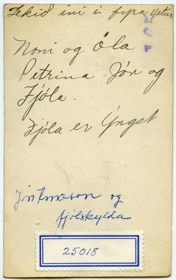 Tekið inni í fyrra vetur
Noni og Óla
Petrína Jón og
Fjóla.
Fjóla er Yngst
Jón Arnason og
fjölskylda
25018